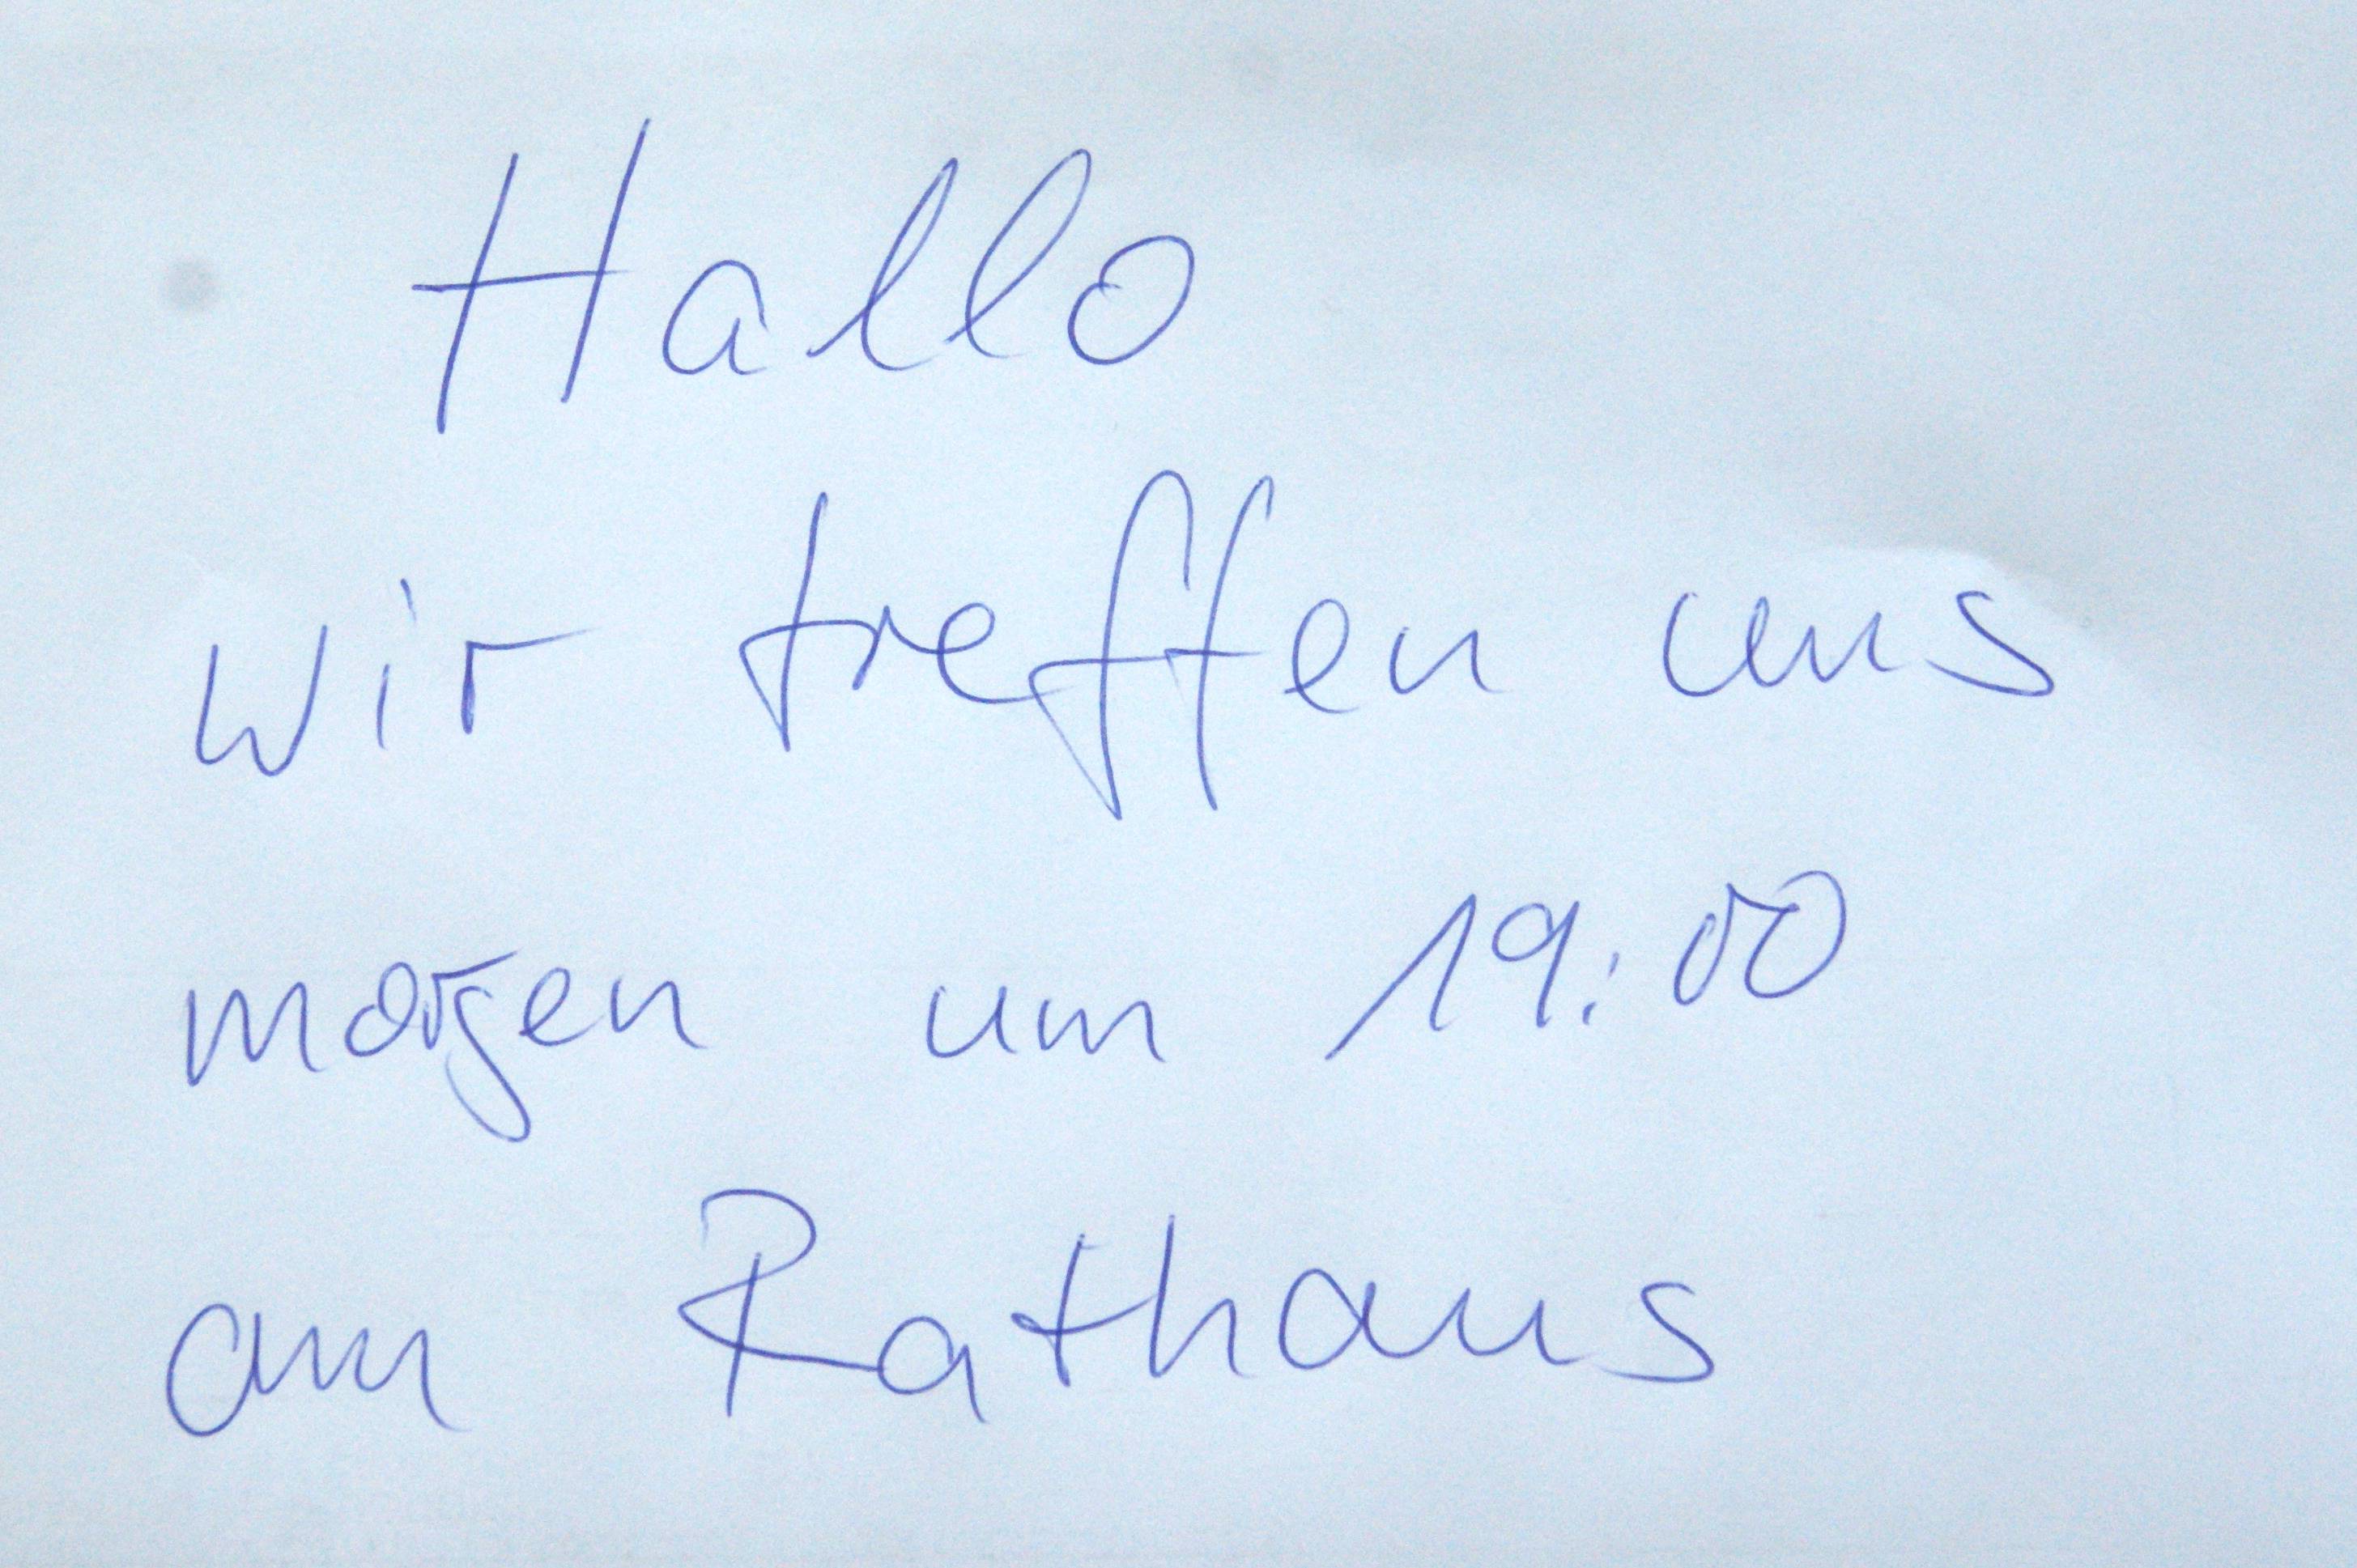 Hallo
wir treffen uns
morgen um 19:00
am Rathaus